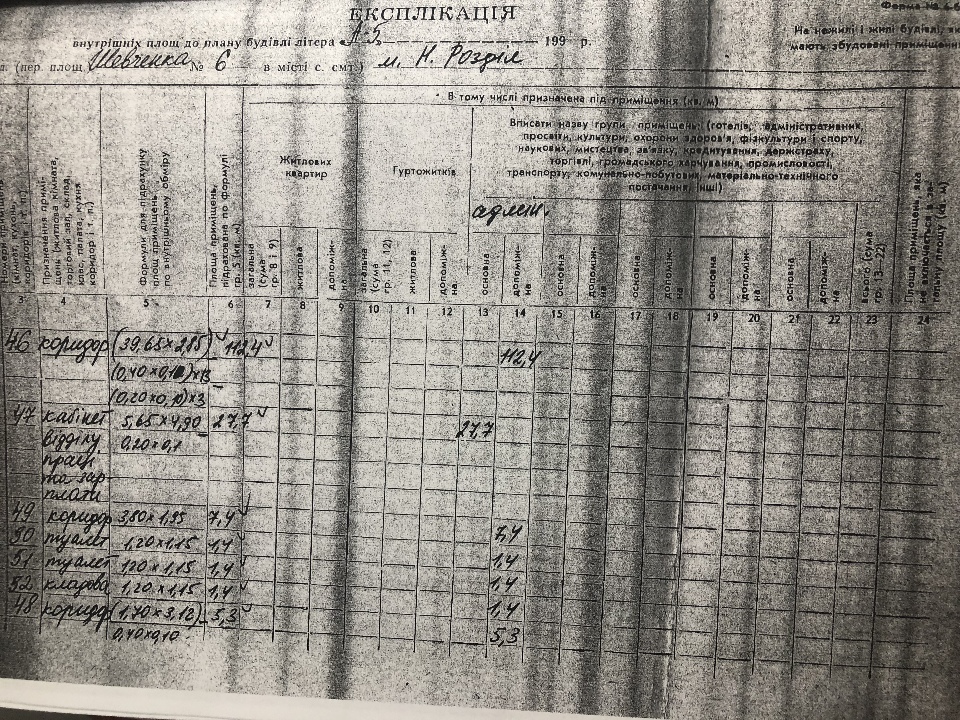 ЕКСПЛІКАЦІЯ
Форма №
внутрішніх площ до плану будівлі літера „А-5" 199 р.
На нежилі і жилі будівлі,
мають збудовані приміщення
(пер. площ Шевченка № 6 в місті с. смт.) м. Н. Розділ
В тому числі призначене під приміщення (кв. м)
Призначення примі-
щення (житлова кімната,
торговий зал, склад,
клас, палата, кухня
коридор і т. п.)
Формули для підрахунку
площ приміщень
по внутрішньому обміру
Площа приміщень,
підрахована по формулі
Житлових
квартир
загальна
(сума
гр. 8 і 9)
житлова
допоміж-
на
Гуртожитків
загальна
(сума
гр. 11, 12)
житлова
допоміж-
на
Вписати назву групи приміщень (готелів, адміністративних,
просвіти, культури, охорони здоров'я, фізкультури і спорту,
наукових, мистецтва, зв'язку, кредитування, держстраху,
торгівлі, громадського харчування, промисловості,
транспорту, комунально-побутових, матеріально-технічного
постачання, інші)
адмін.
основна допоміж-на основна допоміж-на основна допоміж-на основна допоміж-на основна допоміж-на
всього (сума
гр. 13—22)
Площа приміщень, яка
не включається в за-
гальну площу (кв. м)
3 4 5 6 7 8 9 10 11 12 13 14 15 16 17 18 19 20 21 22 23 24
46 коридор (39,65×2,85) 112,4 112,4
(0,40×0,10)×13
(0,20×0,10)×3
47 кабінет 5,65×4,90 27,7 27,7
відділу 0,20×0,1
праці
та зар
плати
49 коридор 3,80×1,95 7,4 7,4
50 туалет 1,20×1,15 1,4 1,4
51 туалет 120×1,15 1,4 1,4
52 кладова 1,20×1,15 1,4 1,4
48 коридор (1,70×3,12) 5,3 5,3
0,40×0,10